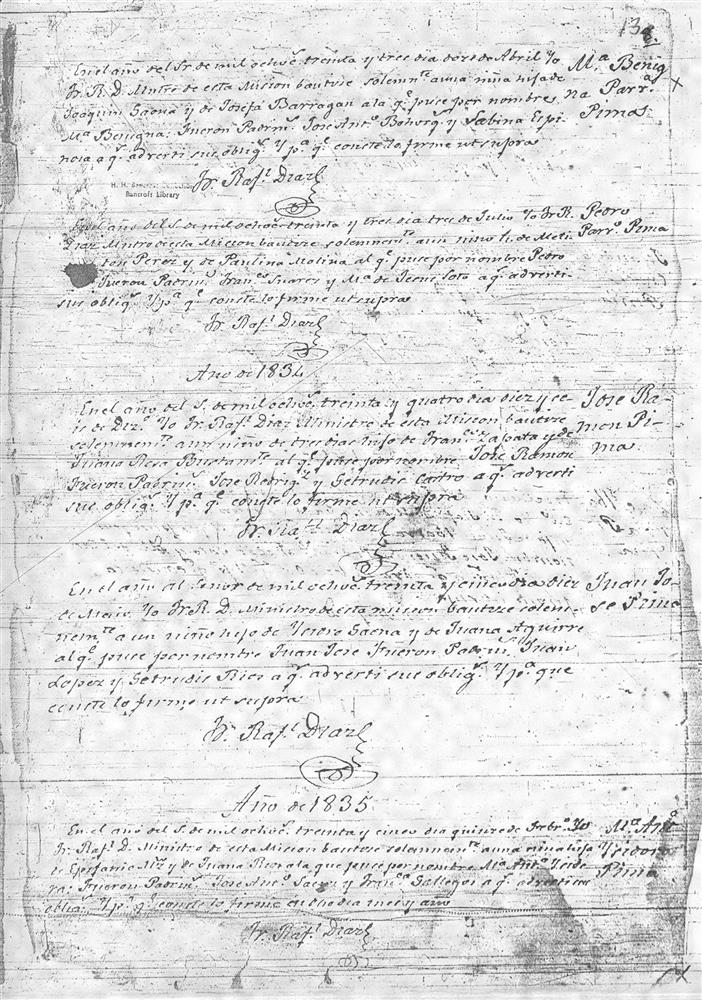 138.
En el año del Sr. de mil ochoc.s treinta y tres dia doze de Abril Yo
Fr. R. D. Mntro de esta Mision bautize solemn.te a una niña hija de
Joaquin Saena y de Josefa Barragan a la q.e puse por nombre
M.a Benigna: Fueron Padrin.s Jose Ant.o Bohorq.s y Sabina Espi
nosa, a q.s adverti sus oblig.s Y p.a q.e conste lo firme ut supra
Fr. Raf.l Diaz
M.a Benig
na Parr.a
Pimas.
Bancroft Library
En el año del S. de mil ochoc.s treinta y tres dia tres de Julio Yo Fr. R.
Diaz Mintro de esta Mision bautize solemnem.te a un nino h. de Meli
ton Perez y de Paulina Molina al q.e puse por nombre Pedro
Fueron Padrin.s Fran.co Suares y M.a de Jesus Soto a q.s adverti
sus oblig.s Y p.a q.e conste lo firme ut supra
Fr. Raf.l Diaz
Pedro
Parr.o Pima
Año de 1834
En el año del S. de mil ochoc.s treinta y quatro dia diez y se
is de Diz.e Yo Fr. Raf.l Diaz Ministro de esta Mision bautize
solemnem.te a un niño de tres dias hijo de Fran.co Zapata y de
Juana Rosa Bustam.te al q.e puse por nombre Jose Ramon
Fueron Padrin.s Jose Rodrig.z y Getrudis Castro a q.s adverti
sus oblig.s Y p.a q.e conste lo firme ut supra
Fr. Raf.l Diaz
Jose Ra-
mon Pi-
ma
En el año del Señor de mil ochoc.s treinta y cinco dia diez
de Maio Yo Fr. R. D. Ministro de esta mision bautize solem-
nem.te a un niño hijo de Ysidro Saena y de Juana Aguirre
al q.e puse por nombre Juan Jose Fueron Padrin.s Juan
Lopez y Getrudis Rios a q.s adverti sus oblig.s Y p.a que
conste lo firmo ut supra
Fr. Raf.l Diaz
Juan Jo-
se Pima
Año de 1835
En el año del S. de mil ochoc.s treinta y cinco dia quinze de Febr.o Yo
Fr. Raf.l D. Ministro de esta Mision bautize solemnem.te a una nina hija
de Epifanio M.z y de Juana Rosa la que puse por nombre M.a Ant.a Ysido
ra: Fueron Padrin.s Jose Ant.o y Fran.ca Gallegos a q.s adverti sus
oblig.s Y p.a q.e conste lo firme en dho dia mes y año
Fr. Raf.l Diaz
M.a Ant.a
Ysidora
Pima